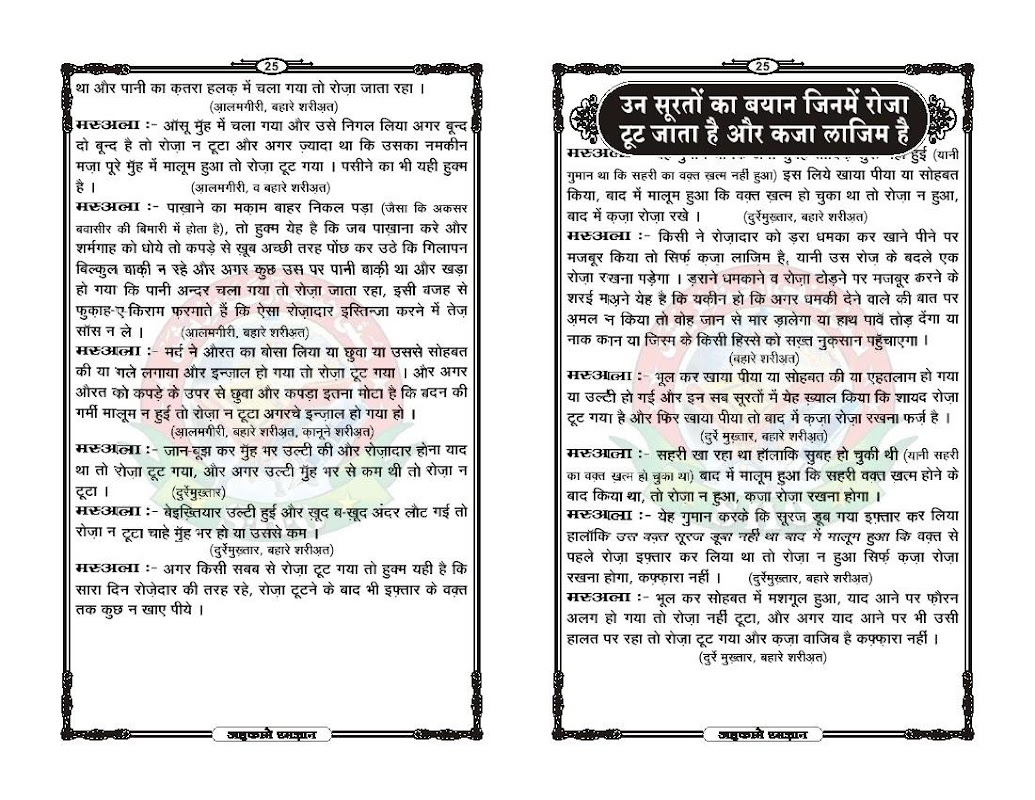 25
था और पानी का क़तरा हलक़ में चला गया तो रोज़ा जाता रहा ।
(आ़लमगीरी, बहारे शरीअ़त)
मस्अला :- ऑसू मुँह में चला गया और उसे निगल लिया अगर बून्द
दो बून्द है तो रोज़ा न टूटा और अगर ज़्यादा था कि उसका नमकीन
मज़ा पूरे मुँह में मालूम हुआ तो रोज़ा टूट गया । पसीने का भी यही हुक्म
है । (आ़लमगीरी, व बहारे शरीअ़त)
मस्अला :- पाख़ाने का मक़ाम बाहर निकल पड़ा (जैसा कि अकसर
बवासीर की बिमारी में होता है), तो हुक्म येह है कि जब पाख़ाना करे और
शर्मगाह को धोये तो कपड़े से ख़ूब अच्छी तरह पोंछ कर उठे कि गिलापन
बिल्कुल बाक़ी न रहे और अगर कुछ उस पर पानी बाक़ी था और खड़ा
हो गया कि पानी अन्दर चला गया तो रोज़ा जाता रहा, इसी वजह से
फुकाह-ए-किराम फरमाते हैं कि ऐसा रोज़ादार इस्तिन्जा करने में तेज़
सॉस न ले । (आलमगीरी, बहारे शरीअ़त)
मस्अला :- मर्द ने औरत का बोसा लिया या छुवा या उससे सोहबत
की या गले लगाया और इन्ज़ाल हो गया तो रोज़ा टूट गया । और अगर
औरत को कपड़े के उपर से छुवा और कपड़ा इतना मोटा है कि बदन की
गर्मी मालूम न हुई तो रोज़ा न टूटा अगरचे इन्ज़ाल हो गया हो ।
(आ़लमगीरी, बहारे शरीअ़त, क़ानूने शरीअ़त)
मस्अला :- जान-बूझ कर मुँह भर उल्टी की और रोज़ादार होना याद
था तो रोज़ा टूट गया, और अगर उल्टी मुँह भर से कम थी तो रोज़ा न
टूटा । (दुर्रेमुख़्तार)
मस्अला :- बेइख़्तियार उल्टी हुई और ख़ूद ब-ख़ूद अंदर लौट गई तो
रोज़ा न टूटा चाहे मुँह भर हो या उससे कम ।
(दुर्रेमुख़्तार, बहारे शरीअ़त)
मस्अला :- अगर किसी सबब से रोज़ा टूट गया तो हुक्म यही है कि
सारा दिन रोज़ेदार की तरह रहे, रोज़ा टूटने के बाद भी इफ़्तार के वक़्त
तक कुछ न खाए पीये ।
अहकामे रमज़ान
25
उन सूरतों का बयान जिनमें रोजा
टूट जाता है और कजा लाजिम है
मस्अला हुई (यानी
गुमान था कि सहरी का वक़्त ख़त्म नहीं हुआ) इस लिये खाया पीया या सोहबत
किया, बाद में मालूम हुआ कि वक़्त ख़त्म हो चुका था तो रोज़ा न हुआ,
बाद में क़ज़ा रोज़ा रखे । (दुर्रेमुख़्तार, बहारे शरीअ़त)
मस्अला :- किसी ने रोज़ादार को ड़रा धमका कर खाने पीने पर
मजबूर किया तो सिर्फ़ क़ज़ा लाजिम है, यानी उस रोज़ के बदले एक
रोज़ा रखना पड़ेगा । ड़राने धमकाने व रोज़ा टोड़ने पर मजबूर करने के
शरई मअ़ने येह है कि यकीन हो कि अगर धमकी देने वाले की बात पर
अ़मल न किया तो वोह जान से मार ड़ालेगा या हाथ पावँ तोड़ देंगा या
नाक कान या जिस्म के किसी हिस्से को सख़्त नुक़सान पहुँचाएगा ।
(बहारे शरीअ़त)
मस्अला :- भूल कर खाया पीया या सोहबत की या एहतलाम हो गया
या उल्टी हो गई और इन सब सूरतों में येह ख़्याल किया कि शायद रोज़ा
टूट गया है और फिर खाया पीया तो बाद में क़ज़ा रोज़ा रखना फर्ज़ है ।
(दुर्रे मुख़्तार, बहारे शरीअ़त)
मस्अला :- सहरी खा रहा था हॉलाकि सुबह हो चुकी थी (यानी सहरी
का वक़्त ख़त्म हो चुका था) बाद में मालूम हुआ कि सहरी वक़्त ख़त्म होने के
बाद किया था, तो रोजा न हुआ, क़ज़ा रोज़ा रखना होगा ।
मस्अला :- येह गुमान करके कि सूरज डूब गया इफ़्तार कर लिया
हालॉकि उस वक़्त सूरज डूबा नहीं था बाद में मालूम हुआ कि वक़्त से
पहले रोज़ा इफ़्तार कर लिया था तो रोज़ा न हुआ सिर्फ़ क़ज़ा रोज़ा
रखना होगा, कफ्फ़ारा नहीं । (दुर्रेमुख़्तार, बहारे शरीअ़त)
मस्अला :- भूल कर सोहबत में मशगूल हुआ, याद आने पर फ़ौरन
अलग हो गया तो रोज़ा नहीं टूटा, और अगर याद आने पर भी उसी
हालत पर रहा तो रोज़ा टूट गया और क़ज़ा वाजिब है कफ्फ़ारा नहीं ।
(दुर्रे मुख़्तार, बहारे शरीअ़त)
अहकामे रमज़ान